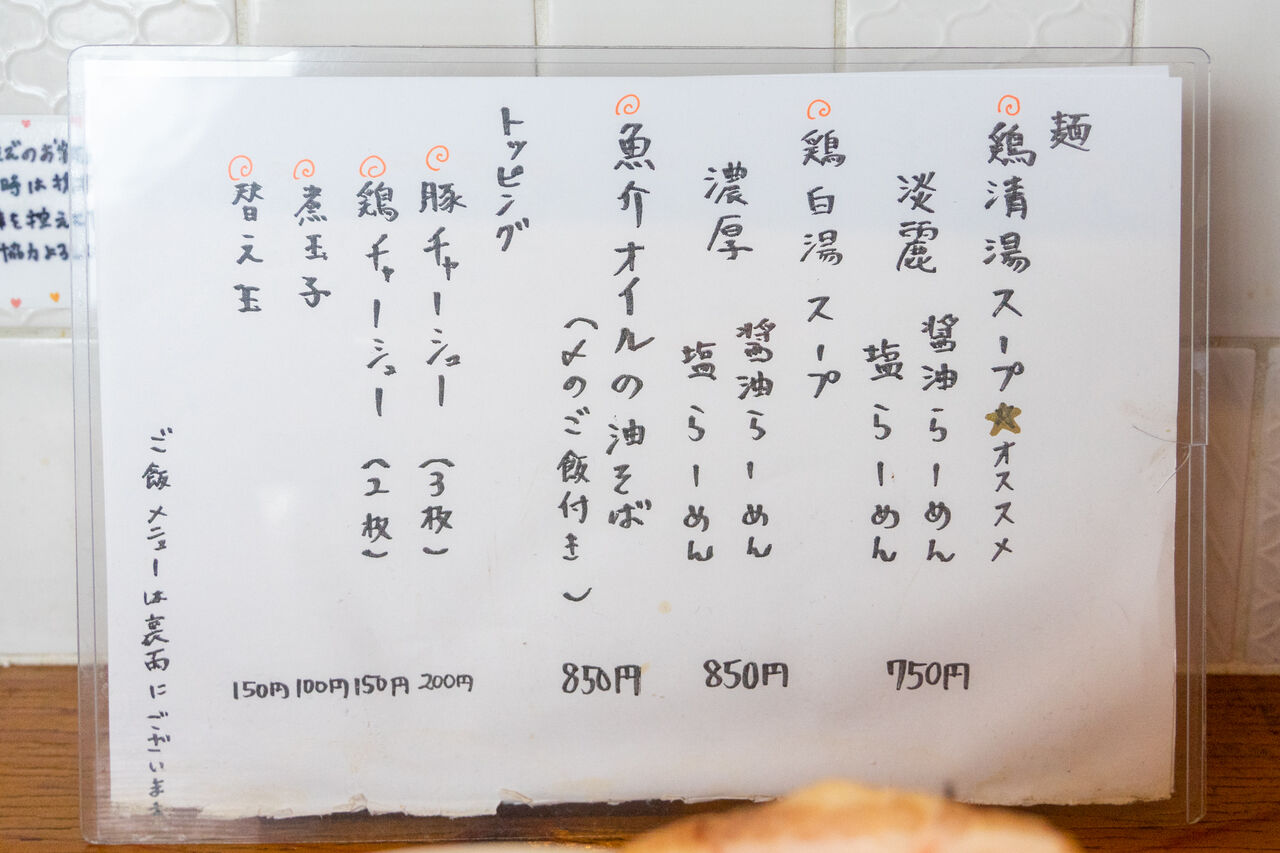 麺
鶏清湯スープ★オススメ
淡麗
醤油らーめん
塩らーめん
750円
鶏白湯スープ
濃厚
醤油らーめん
塩らーめん
850円
魚介オイルの油そば
(〆のご飯付き)
850円
トッピング
豚チャーシュー(3枚)
200円
鶏チャーシュー(2枚)
150円
煮玉子
100円
替え玉
150円
ご飯メニューは裏面にございます
時は
を控え
協力よろ